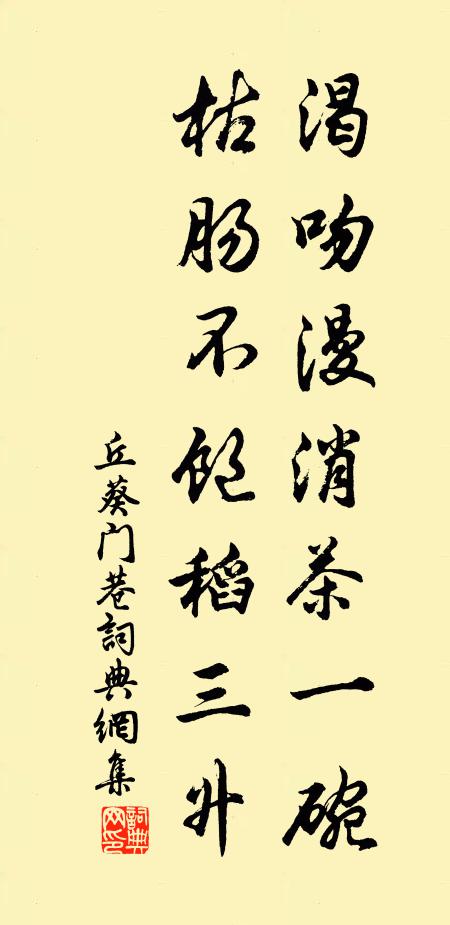 渴吻漫消茶一碗
枯肠不饱稻三升
丘葵门巷詞典網集
詞典网印